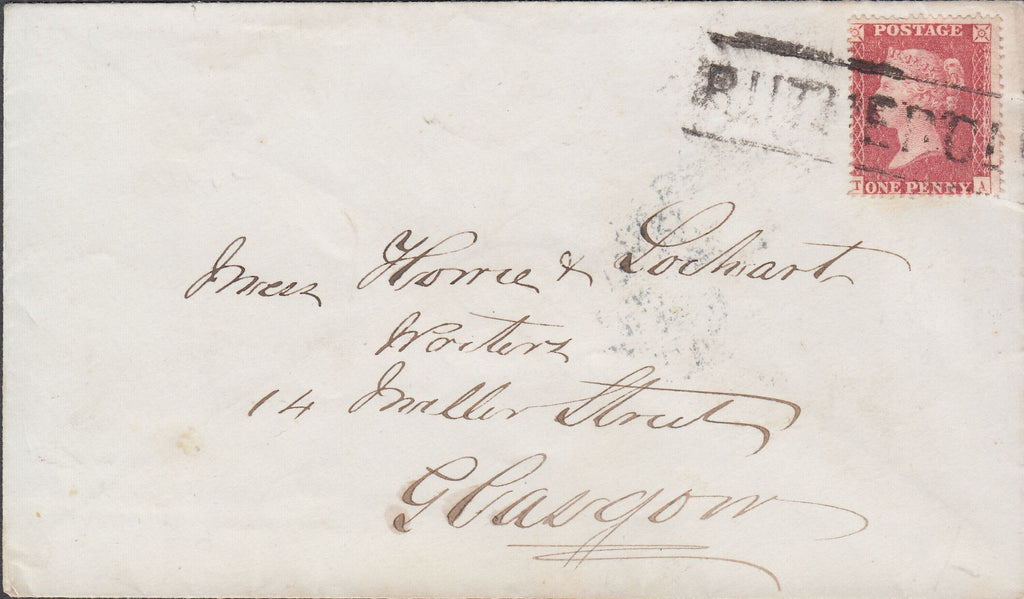 POSTAGE
ONE PENNY
T A
Messrs Howie & Lochhart
Writers
14 Miller Street
Glasgow